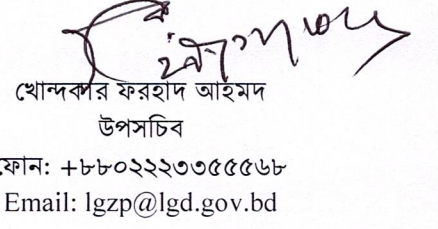 খোন্দকার ফরহাদ আহমদ
উপসচিব
ফোন: +৮৮০২২২৩৩৫৫৫৬৮
Email: lgzp@lgd.gov.bd